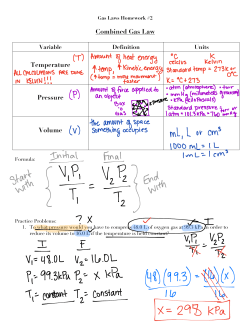 Gas Laws Homework #2
Combined Gas Law
Variable Definition Units
Temperature (T)
ALL CALCULATIONS ARE DONE IN KELVIN!!!
Amount of heat energy
↑ temp ↑ Kinetic energy
(↑ temp = molecules move faster)
°C K
celsius Kelvin
Standard temp = 273K or 0°C
K = °C + 273
Pressure (P)
Amount of force applied to an object
• atm (atmosphere)
• kPa (kilopascals)
Standard pressure
1 atm = 101.3 kPa = 760
Volume (V)
the amount of space something occupies
mL, L or cm³
1000 mL = 1 L
1mL = 1cm³
Formula:
Initial Final
Start with
V₁P₁ = V₂P₂
T₁ T₂
End with
Practice Problems:
? X
1. To what pressure would you have to compress 48.0 L of oxygen gas at 99.3 kPa in order to
reduce its volume to 16.0 L if the temperature is held constant?
I F
V₁ = 48.0L V₂ = 16.0L
P₁ = 99.3kPa P₂ = X kPa
T₁ = constant T₂ = Constant
V₁P₁ = V₂P₂
T₁ T₂
(48)(99.3) = (16)(x)
16 16
X = 298 kPa